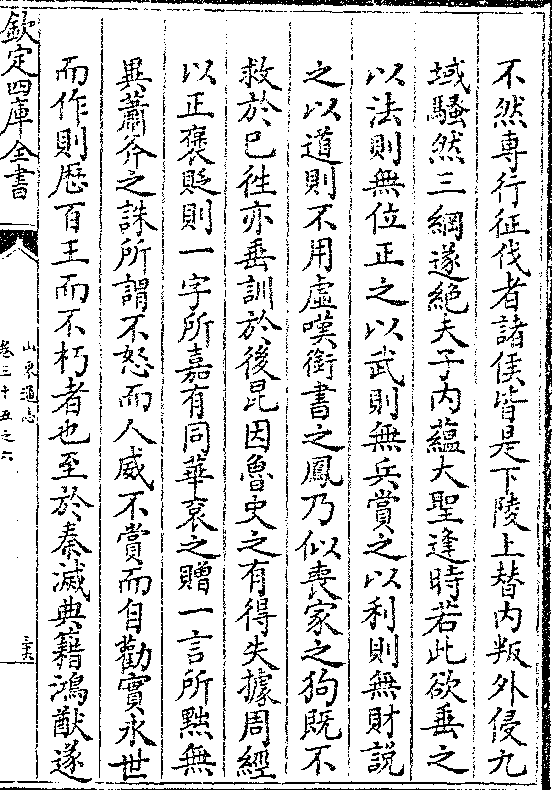 不然專行征伐者諸侯皆是下陵上替内叛外侵九
域騷然三綱遂絶夫子内藴大聖逢時若此欲垂之
以法則無位正之以武則無兵賞之以利則無財説
之以道則不用虚嘆銜書之鳳乃似喪家之狗既不
救於已徃亦垂訓於後昆因魯史之有得失據周經
以正褒貶則一字所嘉有同華衮之贈一言所黜無
異蕭斧之誅所謂不怒而人威不賞而自勸實永世
而作則歴百王而不朽者也至於秦滅典籍鴻猷遂
欽定四庫全書
山東通志
卷三十五之六